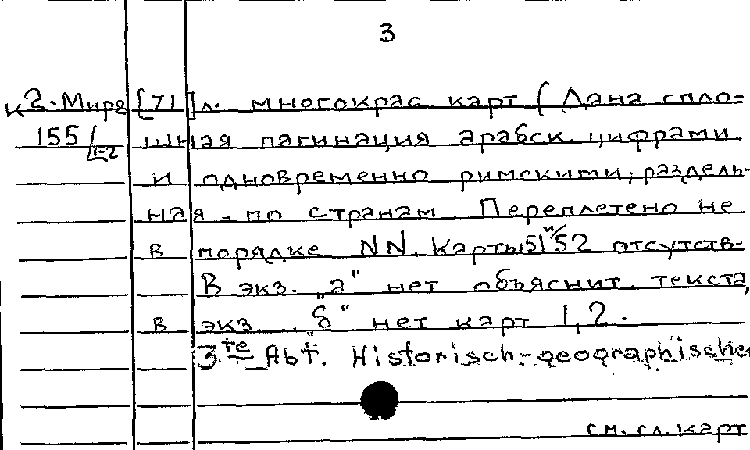 3
к 2. Мира [71] л. многокрас карт (Дана спло-
155/I-2 шная пагинация арабск. цифрами
и одновременно римскими, раздель-
ная - по странам. Переплетено не
в порядке NN. Карты 51 и 52 отсутств.
В экз. "а" нет объяснит. текста,
в экз. "б" нет карт 1, 2.
3te Abt. Historisch-geographische
см. сл. карт